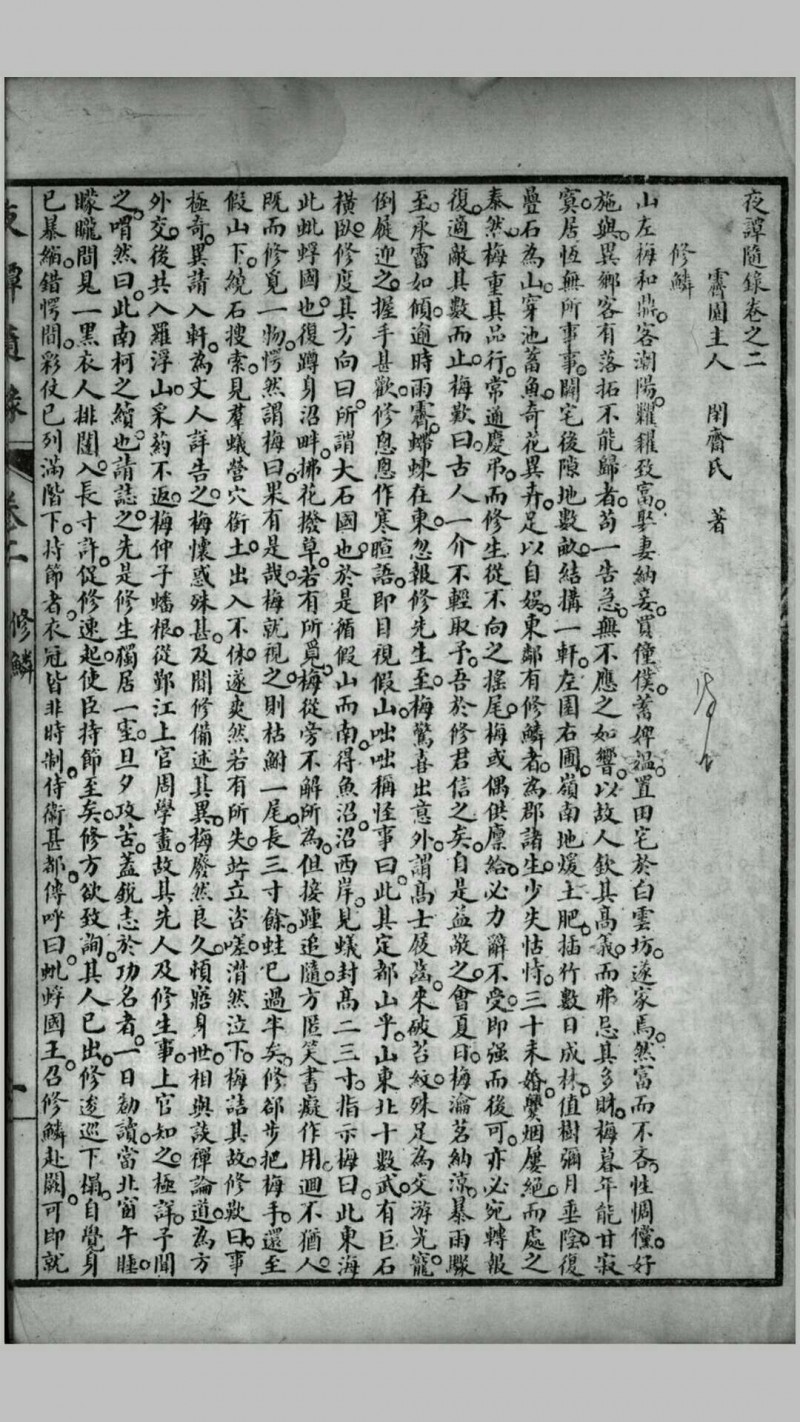 夜譚隨錄卷之二
霽園主人 閑齋氏 著
修鱗
山左梅和鼎。客潮陽。糶糴致富。娶妻納妾。買僮僕。蓄婢媼。置田宅於白雲坊。遂家焉。然富而不吝。性倜儻。好
施與。異鄉客有落拓不能歸者。苟一告急。無不應之如響。以故人欽其高義。而弗忌其多財。梅暮年能甘寂
寞。居恆無所事事。闢宅後隙地數畝。結構一軒。左園右圃。嶺南地煖土肥。插竹數日成林。值樹彌月垂陰。復
疊石為山。穿池蓄魚。奇花異卉。足以自娛。東鄰有修鱗者。為郡諸生。少失怙恃。三十未婚。爨烟屢絕。而處之
泰然。梅重其品行。常通慶弔。而修生從不向之搖尾。梅或偶供廩給。必力辭不受。即强而後可。亦必宛轉報
復。適敵其數而止。梅歎曰。古人一介不輕取予。吾於修君信之矣。自是益敬之。會夏日。梅瀹茗納涼。暴雨驟
至。承霤如傾。逾時雨霽。蝃蝀在東。忽報修先生至。梅驚喜出意外。謂高士屐齒。來破苔紋。殊足為交游光寵。
倒屣迎之。握手甚歡。修悤悤作寒暄語。即目視假山。咄咄稱怪事。曰。此其定都山乎。山東北十數武。有巨石
橫臥。修度其方向曰。所謂大石國也。於是循假山而南。得魚沼。沼西岸。見蟻封高二三寸。指示梅曰。此東海
此蚍蜉國也。復蹲身沼畔。拂花撥草。若有所覓。梅從旁不解所為。但接踵追隨。方匿笑書癡作用。迥不猶人。
既而修覓一物。愕然謂梅曰。果有是哉。梅就視之。則枯鮒一尾。長三寸餘。蛀已過半矣。修郤步把梅手。還至
假山下。繞石搜索。見羣蟻營穴銜土。出入不休。遂爽然若有所失。竚立咨嗟。潸然泣下。梅詰其故。修歎曰。事
極奇異。請入軒。為丈人詳告之。梅懷惑殊甚。及聞修備述其異。梅廢然良久。頓寤身世。相與談禪論道。為方
外交。後共入羅浮山。采葯不返。梅仲子蟠根。從鄞江上官周學畫。故其先人及修生事。上官知之極詳。予聞
之。喟然曰。此南柯之續也。請誌之。先是修生獨居一室。旦夕攻苦。蓋銳志於功名者。一日勤讀。當北窗午睡。
朦朧間見一黑衣人排闥入。長寸許。促修速起。使臣持節至矣。修方欲致詢。其人已出。修逡巡下榻。自覺身
已暴縮。錯愕間。彩仗已列滿階下。持節者。衣冠皆非時制。侍衛甚都。傳呼曰。蚍蜉國王。召修鱗赴闕。可即就
夜譚隨錄 卷二 修鱗 一